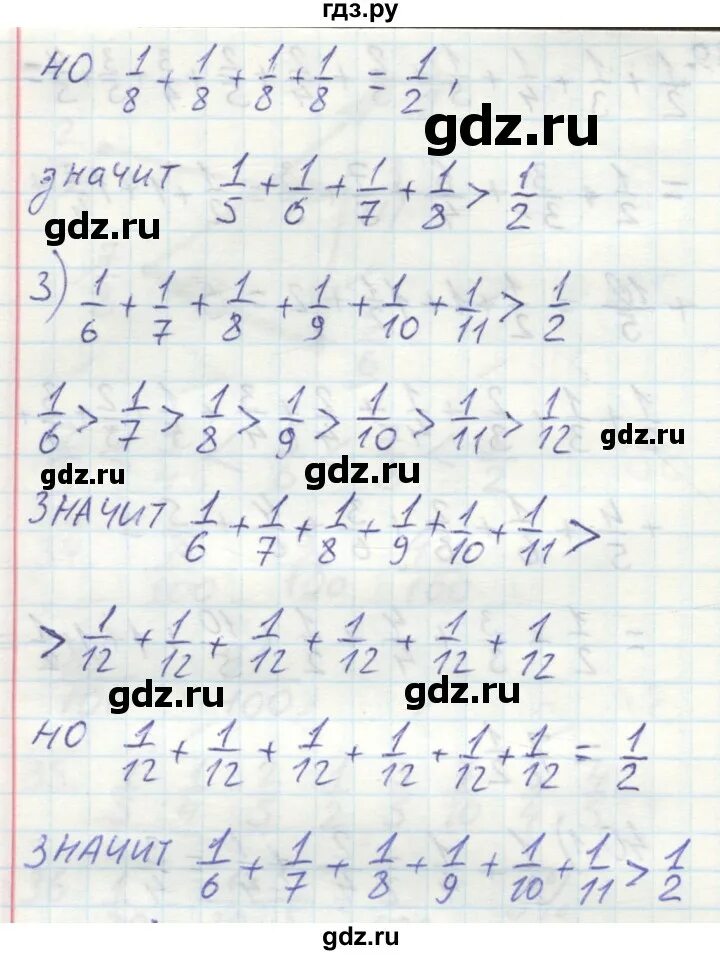 гдз.ру
но 1/8 + 1/8 + 1/8 + 1/8 = 1/2,
gdz.ru
значит 1/5 + 1/6 + 1/7 + 1/8 > 1/2
gdz.ru
3) 1/6 + 1/7 + 1/8 + 1/9 + 1/10 + 1/11 > 1/2
1/6 > 1/7 > 1/8 > 1/9 > 1/10 > 1/11 > 1/12
gdz.ru
gdz.ru gdz.ru
значит 1/6 + 1/7 + 1/8 + 1/9 + 1/10 + 1/11 >
> 1/12 + 1/12 + 1/12 + 1/12 + 1/12 + 1/12
gdz.ru gdz.ru
но 1/12 + 1/12 + 1/12 + 1/12 + 1/12 + 1/12 = 1/2
значит 1/6 + 1/7 + 1/8 + 1/9 + 1/10 + 1/11 > 1/2
gdz.ru